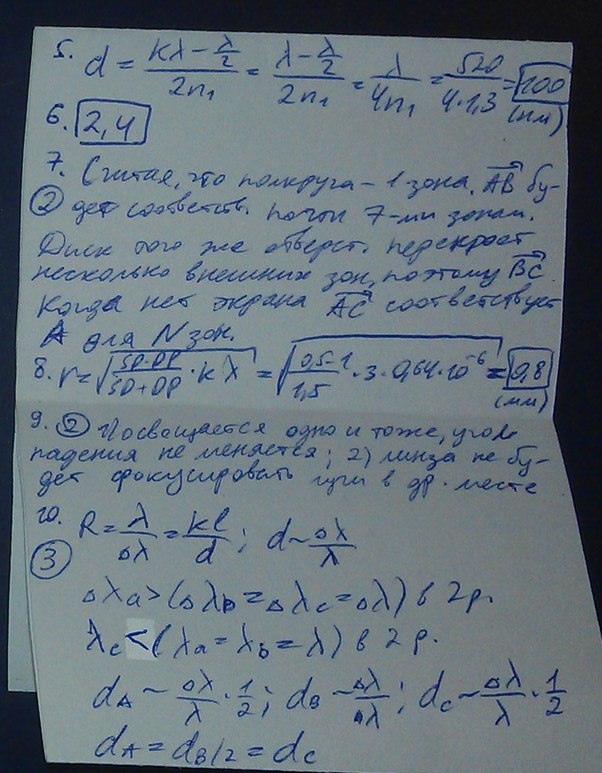 5. d = (kλ - λ/2)/(2n₁) = (λ - λ/2)/(2n₁) = λ/(4n₁) = 520/(4·1,3) = 100 (нм)
6. 2,4
7. Считая, что полкруга – 1 зона. AB бу-
② дет соответств. почти 7-ми зонам.
Диск того же отверст. перекроет
несколько внешних зон, поэтому BC
Когда нет экрана AC соответствует
A для N зон.
8. r = √(SD·DP/(SD+DP) · kλ) = √(0,5·1/1,5 · 3 · 0,64·10⁻⁶) = 0,8 (мм)
9. ② 1) освещается одно и тоже, угол
падения не меняется; 2) линза не бу-
дет фокусировать лучи в др. месте
10. R = λ/Δλ = kl/d ; d ~ Δλ/λ
③
Δλa > (Δλb = Δλc = Δλ) в 2 р.
λc < (λa = λb = λ) в 2 р.
dA ~ Δλ/λ · 1/2 ; dB ~ Δλ/Δλ ; dc ~ Δλ/λ · 1/2
dA = dB/2 = dc